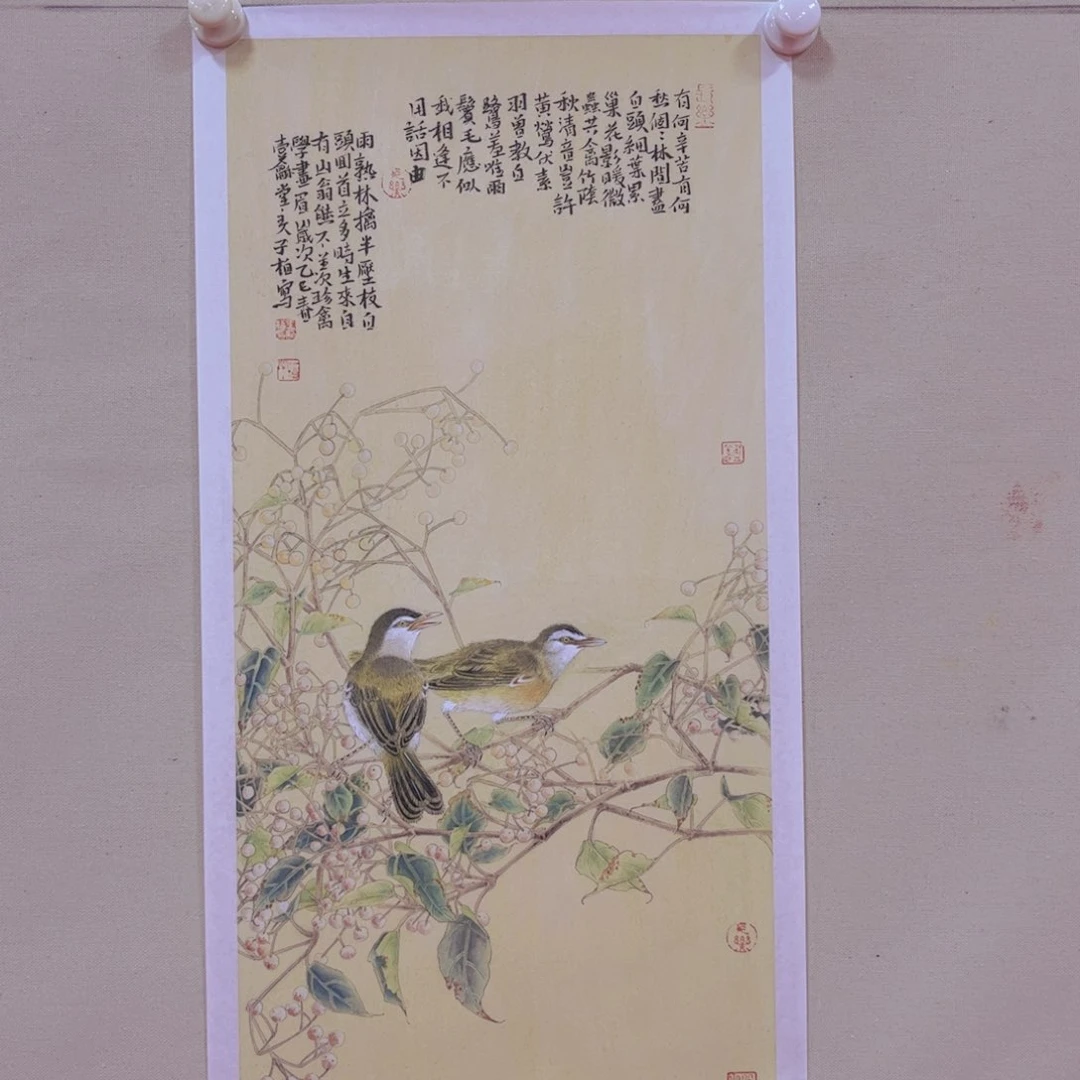 有何辛苦有何
愁個々林間盡
白頭細葉累
巢花影暖微
蟲共食竹陰
秋清音豈許
黃鶯伏素
羽曾教白
鷺羞唯雨
鬢毛應似
我相逢不
用話因由
雨熟林擒半壓枝白
頭回首立多時生來自
有山翁態不並次珍禽
學畫眉歲次乙巳春
堂主子柏寫